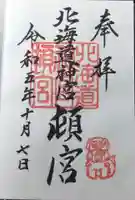 奉拝
北海道神宮
頓宮
北海道
頓宮
令和五年十月七日